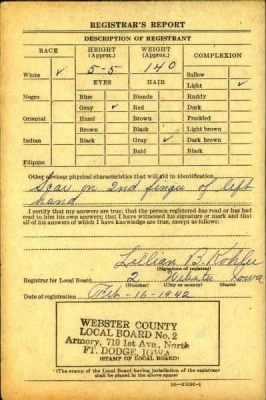 REGISTRAR'S REPORT
DESCRIPTION OF REGISTRANT
RACE HEIGHT (Approx.) WEIGHT (Approx.) COMPLEXION
White ✓ 5-5 140 Sallow
Light ✓
EYES HAIR
Negro Blue Blonde Ruddy
Gray ✓ Red Dark
Oriental Hazel Brown Freckled
Brown Black Light brown
Indian Black Gray ✓ Dark brown
Bald Black
Filipino
Other obvious physical characteristics that will aid in identification
Scar on 2nd finger of left
hand
I certify that my answers are true; that the person registered has read or has had
read to him his own answers; that I have witnessed his signature or mark and that
all of his answers of which I have knowledge are true, except as follows:
Lillian B.
(Signature of registrar)
Registrar for Local Board 2 Iowa
(Number) (City or county) (State)
Date of registration Feb-16-1942
WEBSTER COUNTY
LOCAL BOARD No. 2
Armory, 710 1st Ave., North
FT. DODGE, IOWA
(STAMP OF LOCAL BOARD)
(The stamp of the Local Board having jurisdiction of the registrant
shall be placed in the above space)